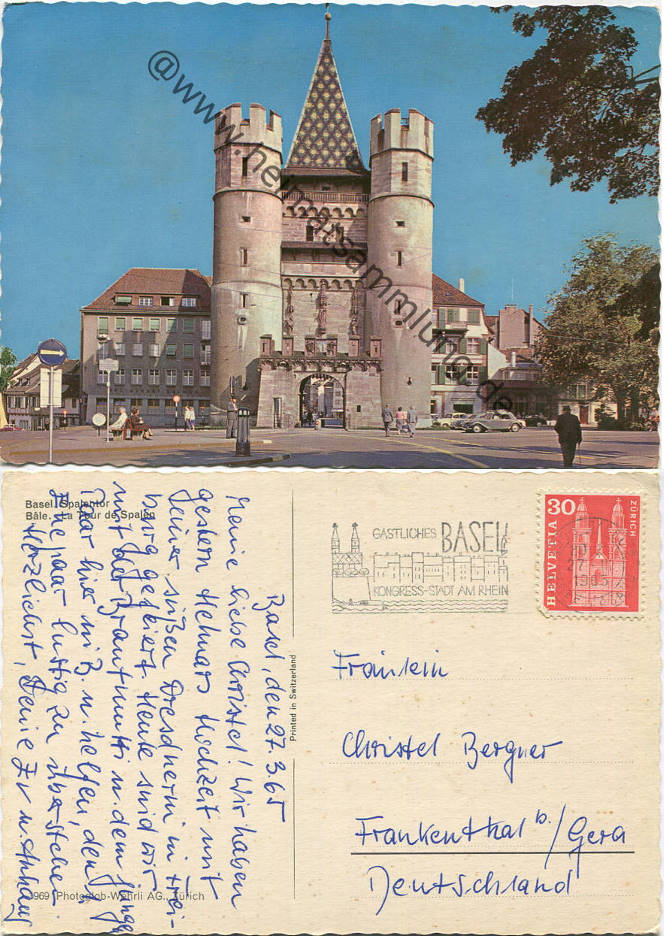 @www.heimatsammlung.de
Basel, Spalentor
Bâle. La Tour de Spalen
Basel, den 27.3.65
Meine liebe Christel! Wir haben
gestern Helmars Hochzeit mit
seiner süßen Dresdnerin in Frei-
burg gefeiert. Heute sind wir
mit der Brautmutti u. dem jungen
Paar hier
u. helfen, den
paar lustig zu überstehen.
Herzlichst, Deine
u. Anhang
3969 Photoglob-Wehrli AG., Zürich
Printed in Switzerland
GASTLICHES BASEL
KONGRESS-STADT AM RHEIN
30
HELVETIA
ZÜRICH
27
1965
Fräulein
Christel Bergner
Frankenthal b./Gera
Deutschland